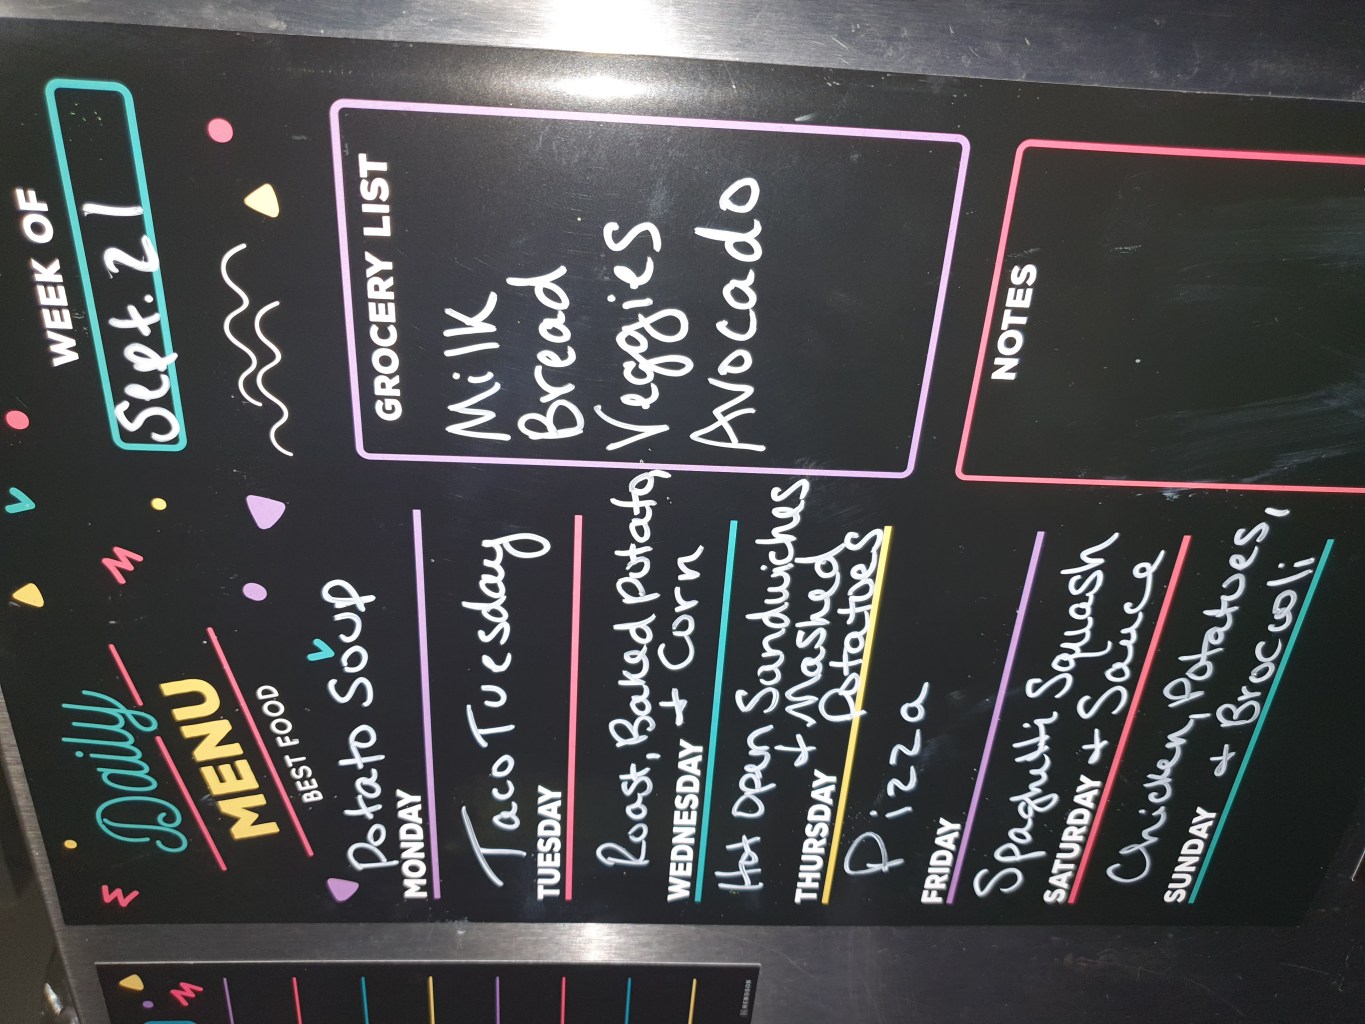 Daily
MENU
BEST FOOD
WEEK OF
Sept. 21
Potato Soup
MONDAY
Taco Tuesday
TUESDAY
Roast, Baked Potato,
WEDNESDAY + Corn
Hot Open Sandwiches
+ Mashed
THURSDAY
Potatoes
Pizza
FRIDAY
Spaghetti Squash
SATURDAY + Sauce
Chicken, Potatoes,
SUNDAY + Broccoli
GROCERY LIST
Milk
Bread
Veggies
Avocado
NOTES